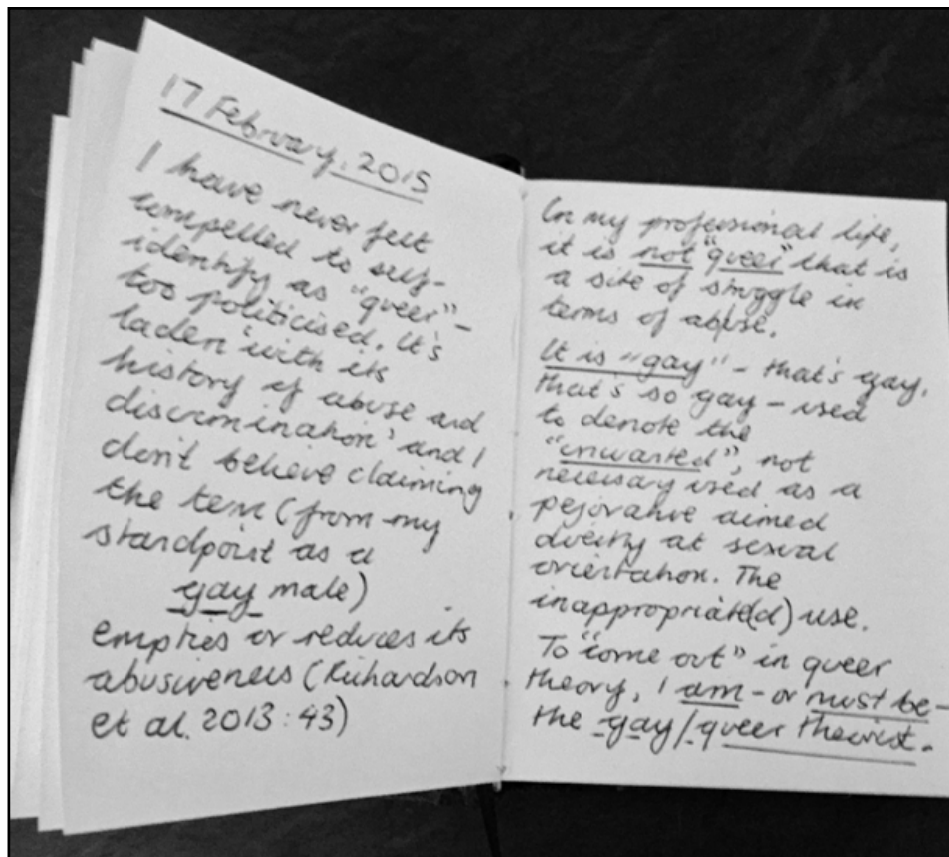 17 February, 2015
I have never felt
compelled to self-
identify as "queer" -
too politicised. It's
laden 'with its
history of abuse and
discrimination' and I
don't believe claiming
the term (from my
standpoint as a
gay male)
empties or reduces its
abusiveness (Richardson
et al. 2013: 43)
In my professional life,
it is not "queer" that is
a site of struggle in
terms of abuse.
It is "gay" - that's gay,
that's so gay - used
to denote the
"unwanted", not
necessary used as a
pejorative aimed
directly at sexual
orientation. The
inappropriate(d) use.
To "come out" in queer
theory, I am - or must be -
the gay/queer theorist.